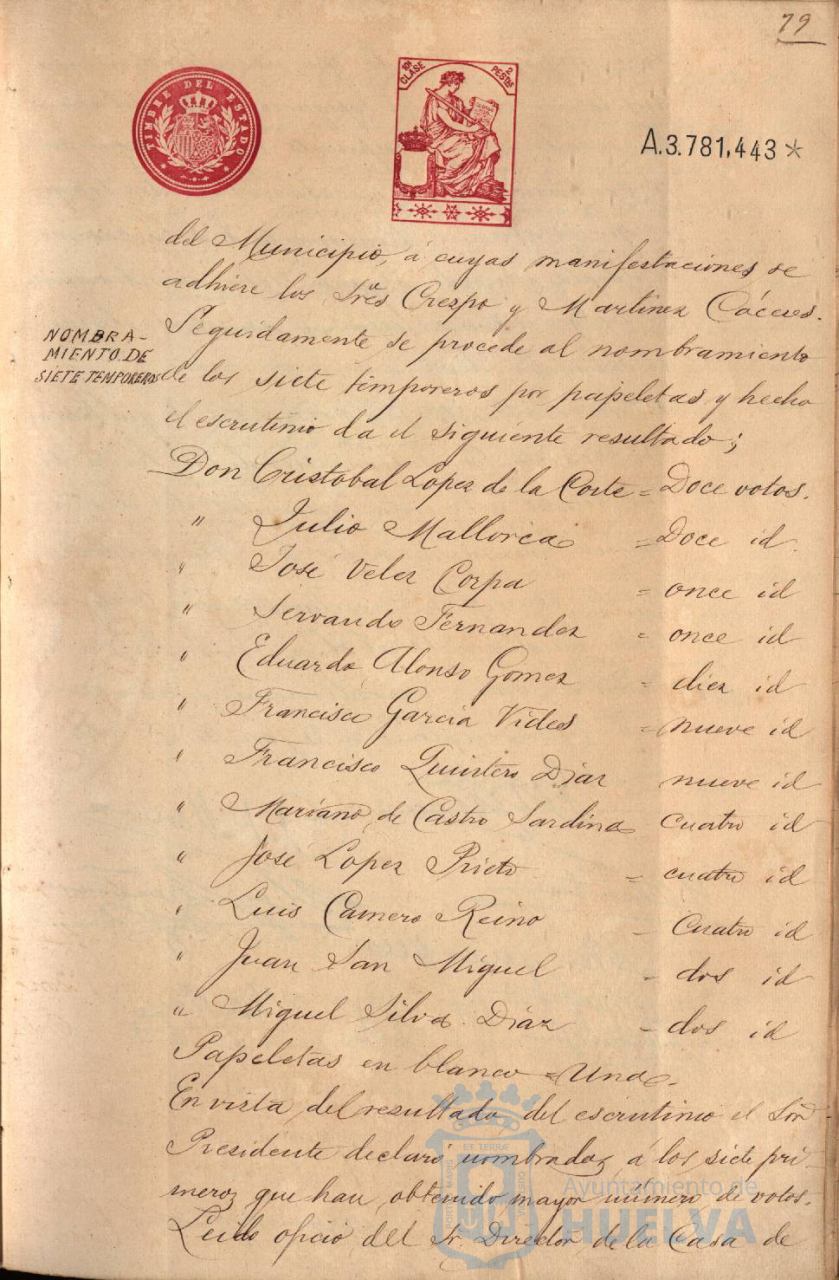 79
TIMBRE DEL ESTADO
10ª CLASE 2 PESETAS
A.3.781,443*
del Municipio, á cuyas manifestaciones se
adhiere los Sres Crespo y Martinez Cáceres.
NOMBRA-
MIENTO DE
SIETE TEMPOREROS
Seguidamente se procede al nombramiento
de los siete temporeros por papeletas y hecho
el escrutinio da el siguiente resultado;
Don Cristobal Lopez de la Corte = Doce votos.
" Julio Mallorca = Doce id.
" José Velez Corpa = once id
" Servando Fernandez = once id
" Eduardo Alonso Gomez = diez id
" Francisco Garcia Vides = nueve id
" Francisco Quintero Diaz nueve id
" Mariano de Castro Sardina cuatro id
" José Lopez Prieto = cuatro id
" Luis Camero Reino - Cuatro id
" Juan San Miguel - dos id
" Miguel Silva Díaz - dos id
Papeletas en blanco = Una.
En vista del resultado del escrutinio el Sor
Presidente declaró nombrados á los siete pri-
meros que han obtenido mayor número de votos.
Leido oficio del Sr. Director de la Casa de
Ayuntamiento de
HUELVA